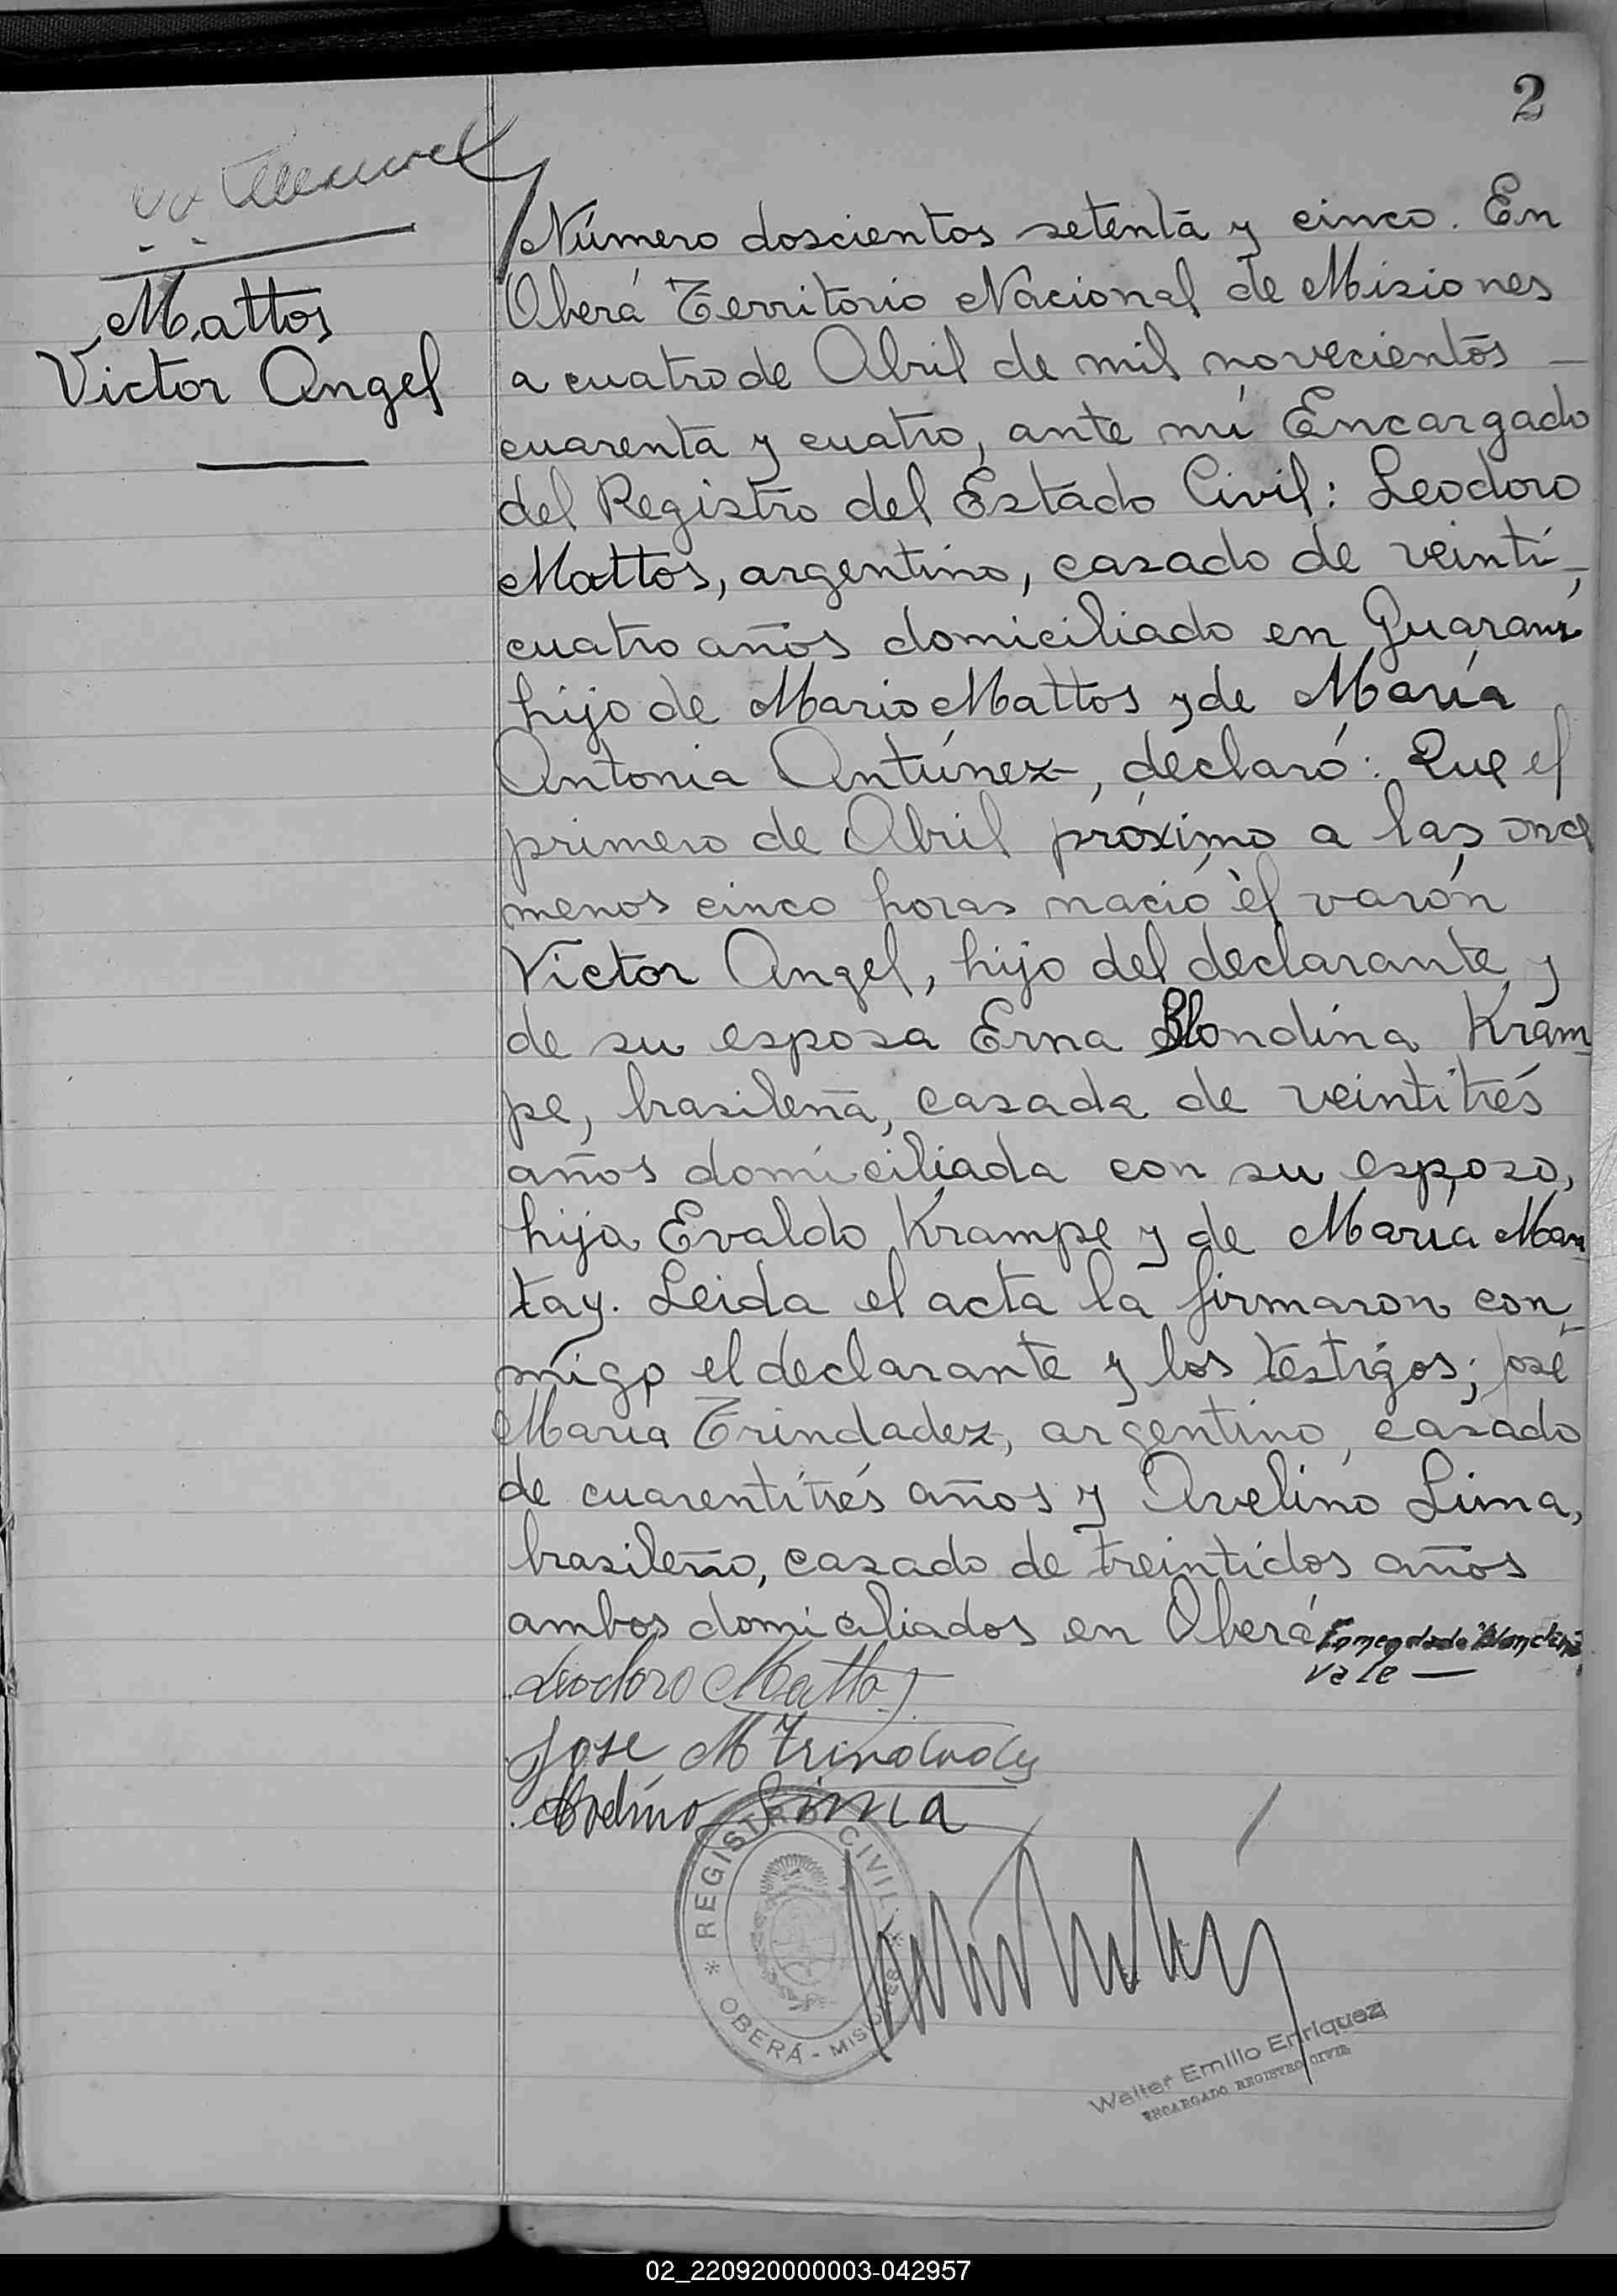 2
Mattos
Victor Angel
Número doscientos setenta y cinco. En
Oberá Territorio Nacional de Misiones
a cuatro de Abril de mil novecientos —
cuarenta y cuatro, ante mí Encargado
del Registro del Estado Civil: Leodoro
Mattos, argentino, casado de veinti-
cuatro años domiciliado en Guaraní
hijo de Mario Mattos y de María
Antonia Antúnez, declaró: Que el
primero de Abril próximo a las once
menos cinco horas nació el varón
Victor Angel, hijo del declarante y
de su esposa Erna Blondina Kram-
pe, brasileña, casada de veintitrés
años domiciliada con su esposo,
hija Evaldo Krampe y de María Man-
tay. Leida el acta la firmaron con-
migo el declarante y los testigos; José
María Trindadez, argentino, casado
de cuarentitrés años y Avelino Lima,
brasileño, casado de treintidos años
ambos domiciliados en Oberá Enmendado "Blondina"
Vale —
Leodoro Mattos
Jose M Trindadez
Avelino Lima
REGISTRO CIVIL
* OBERÁ - MISIONES *
Walter Emilio Enriquez
ENCARGADO REGISTRO CIVIL
02_220920000003-042957